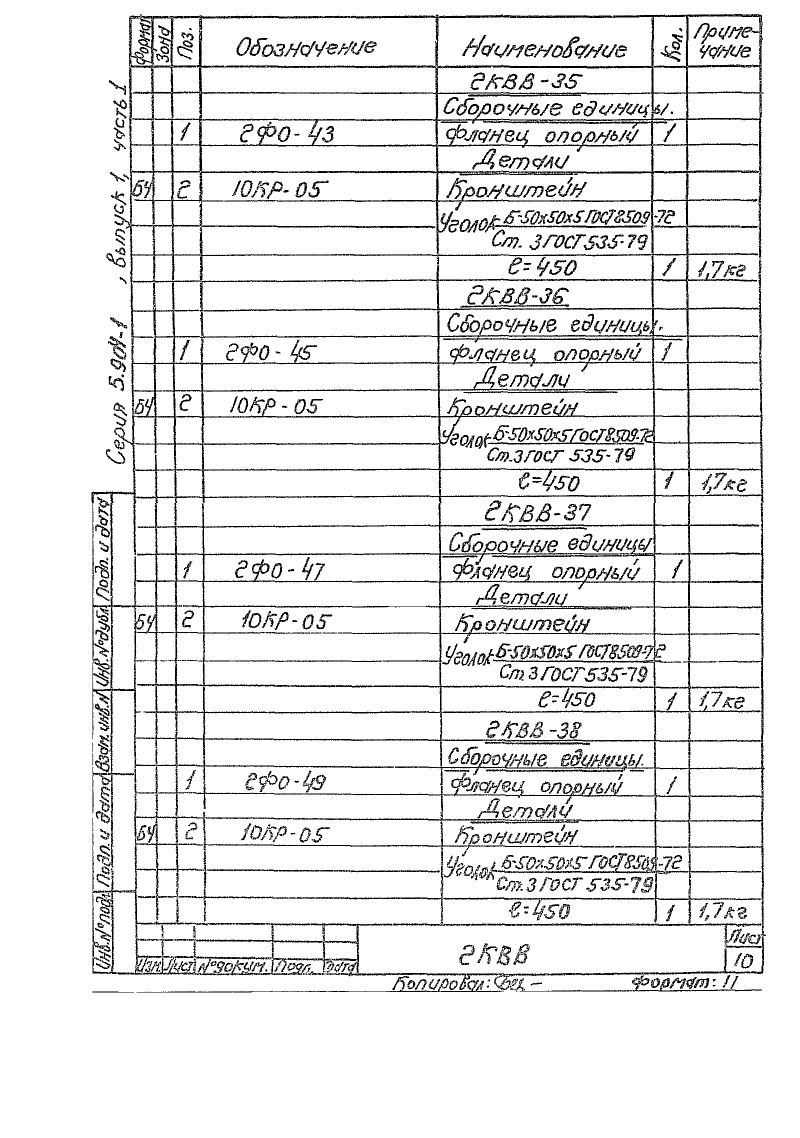 Формат Зона Поз. Обозначение Наименование Кол. Примечание
2КВВ-35
Сборочные единицы.
1 2ФО-43 Фланец опорный 1
Детали
БЧ 2 10КР-05 Кронштейн
Уголок Б-50х50х5 ГОСТ 8509-72
Ст. 3 ГОСТ 535-79
ℓ=450 1 1,7кг
2КВВ-36
Сборочные единицы.
1 2ФО-45 Фланец опорный 1
Детали
БЧ 2 10КР-05 Кронштейн
Уголок Б-50х50х5 ГОСТ 8509-72
Ст.3 ГОСТ 535-79
ℓ=450 1 1,7кг
2КВВ-37
Сборочные единицы
1 2ФО-47 Фланец опорный 1
Детали
БЧ 2 10КР-05 Кронштейн
Уголок Б-50х50х5 ГОСТ 8509-72
Ст.3 ГОСТ 535-79
ℓ=450 1 1,7кг
2КВВ-38
Сборочные единицы.
1 2ФО-49 Фланец опорный 1
Детали
БЧ 2 10КР-05 Кронштейн
Уголок Б-50х50х5 ГОСТ 8509-72
Ст.3 ГОСТ 535-79
ℓ=450 1 1,7кг
Серия 5.904-1 , Выпуск 1, часть 1
Инв.№ подл. Подп. и дата Взам. инв.№ Инв.№ дубл. Подп. и дата
Изм. Лист №докум. Подп. Дата
2КВВ
Лист
10
Копировал: Формат: 11